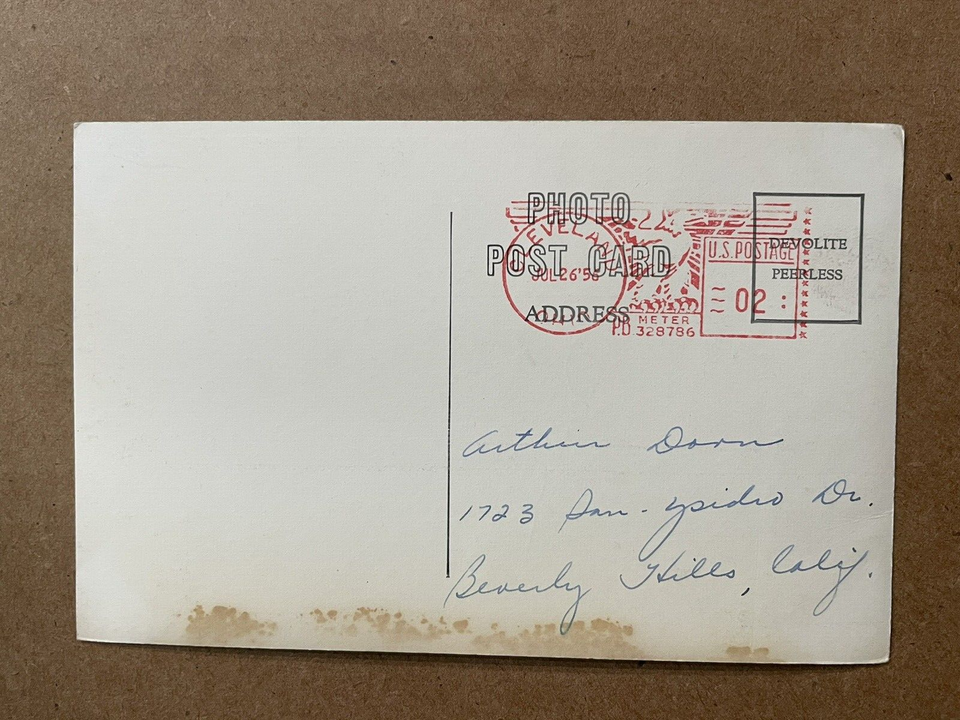 PHOTO
POST CARD
ADDRESS
DEVOLITE
PEERLESS
CLEVELAND
JUL 26 '56
OHIO
U.S. POSTAGE
02
P.B METER
328786
Arthur Dorn
1723 San-Ysidro Dr.
Beverly Hills, Calif.